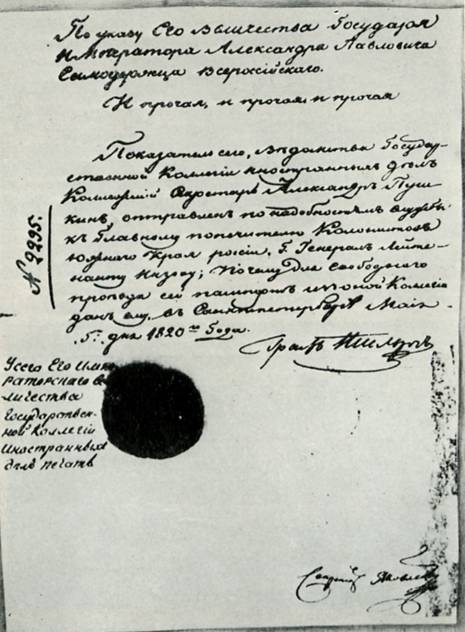 По указу Его Величества Государя
Императора Александра Павловича
Самодержца Всероссійскаго.
И прочая, и прочая, и прочая
Показатель сего, Вѣдомства Государ-
ственной Коллегіи иностранныхъ дѣлъ
Коллежскій Секретарь Александръ Пуш-
кинъ, отправленъ по надобностямъ службы
къ Главному попечителю Колонистовъ
Южнаго Края россіи, Г. Генералъ Лейте-
нанту Инзову; почему для свободнаго
проѣзда сей пашпортъ изъ оной Коллегіи
данъ ему въ Санктпетербургѣ Маія
5. дня 1820го Года.
№ 2295.
Графъ Нессельродъ
У сего Его Импе
раторскаго Ве
личества
Государствен-
ной Коллегіи
Иностранныхъ
дѣлъ печать
Секретарь